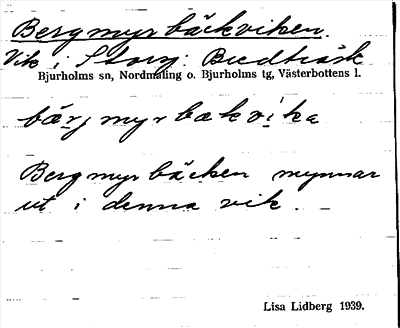 Bergmyrbäckviken.
Vik i Storg: Bredträsk
Bjurholms sn, Nordmaling o. Bjurholms tg, Västerbottens l.
bärjmyrbækvika
Bergmyrbäcken mynnar
ut i denna vik.
Lisa Lidberg 1939.